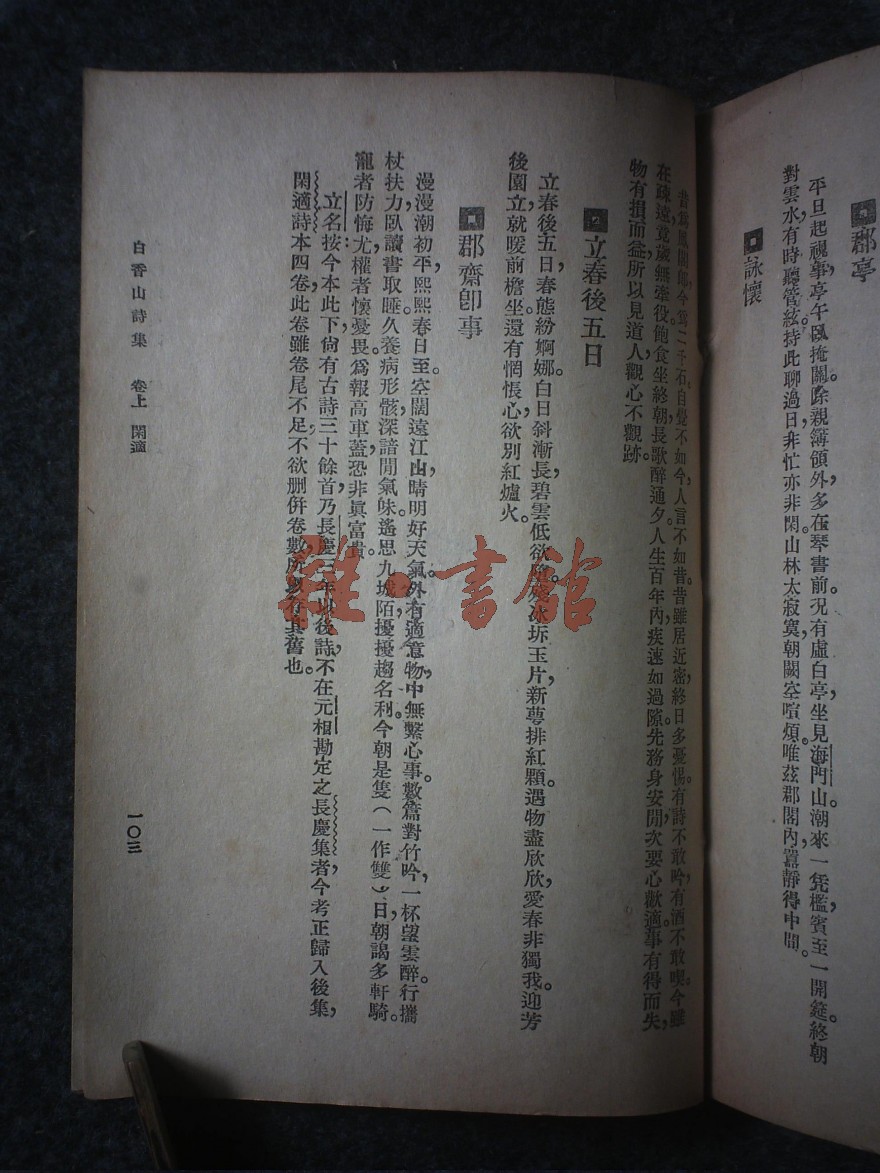 郡亭
平旦起視事,亭午臥掩關。除親簿領外,多在琴書前。況有虛白亭,坐見海門山。潮來一凭檻,賓至一開筵。終朝
對雲水,有時聽管絃。持此聊過日,非忙亦非閑。山林太寂寞,朝闕空喧煩。唯茲郡閣內,囂靜得中間。
詠懷
昔爲鳳閣郎,今爲二千石。自覺不如今,人言不如昔。昔雖居近密,終日多憂惕。有詩不敢吟,有酒不敢喫。今雖
在疎遠,竟歲無牽役。飽食坐終朝,長歌醉通夕。人生百年內,疾速如過隙。先務身安閒,次要心歡適。事有得而失,
物有損而益。所以見道人,觀心不觀跡。
立春後五日
立春後五日,春態紛婀娜。白日斜漸長,碧雲低欲墮。殘冰坼玉片,新萼排紅顆。遇物盡欣欣,愛春非獨我。迎芳
後園立,就暖前檐坐。還有惆悵心,欲別紅爐火。
郡齋卽事
漫漫潮初平,熙熙春日至。空闊遠江山,晴明好天氣。外有適意物,中無繫心事。數篇對竹吟,一杯望雲醉。行攜
杖扶力,臥讀書取睡。久養病形骸,深諳閒氣味。遙思九城陌,擾擾趨名利。今朝是隻(一作雙)日,朝謁多軒騎。
寵者防悔尤,權者懷憂畏。爲報高車蓋,恐非眞富貴。
立名按:今本此下,尙有古詩三十餘首,乃長慶三年以後詩,不在元相勘定之長慶集者,今考正歸入後集,
閑適詩本四卷,此卷雖卷尾不足,不欲刪併卷數,所以存其舊也。
白香山詩集 卷上 閑適
一〇三
羅·書館